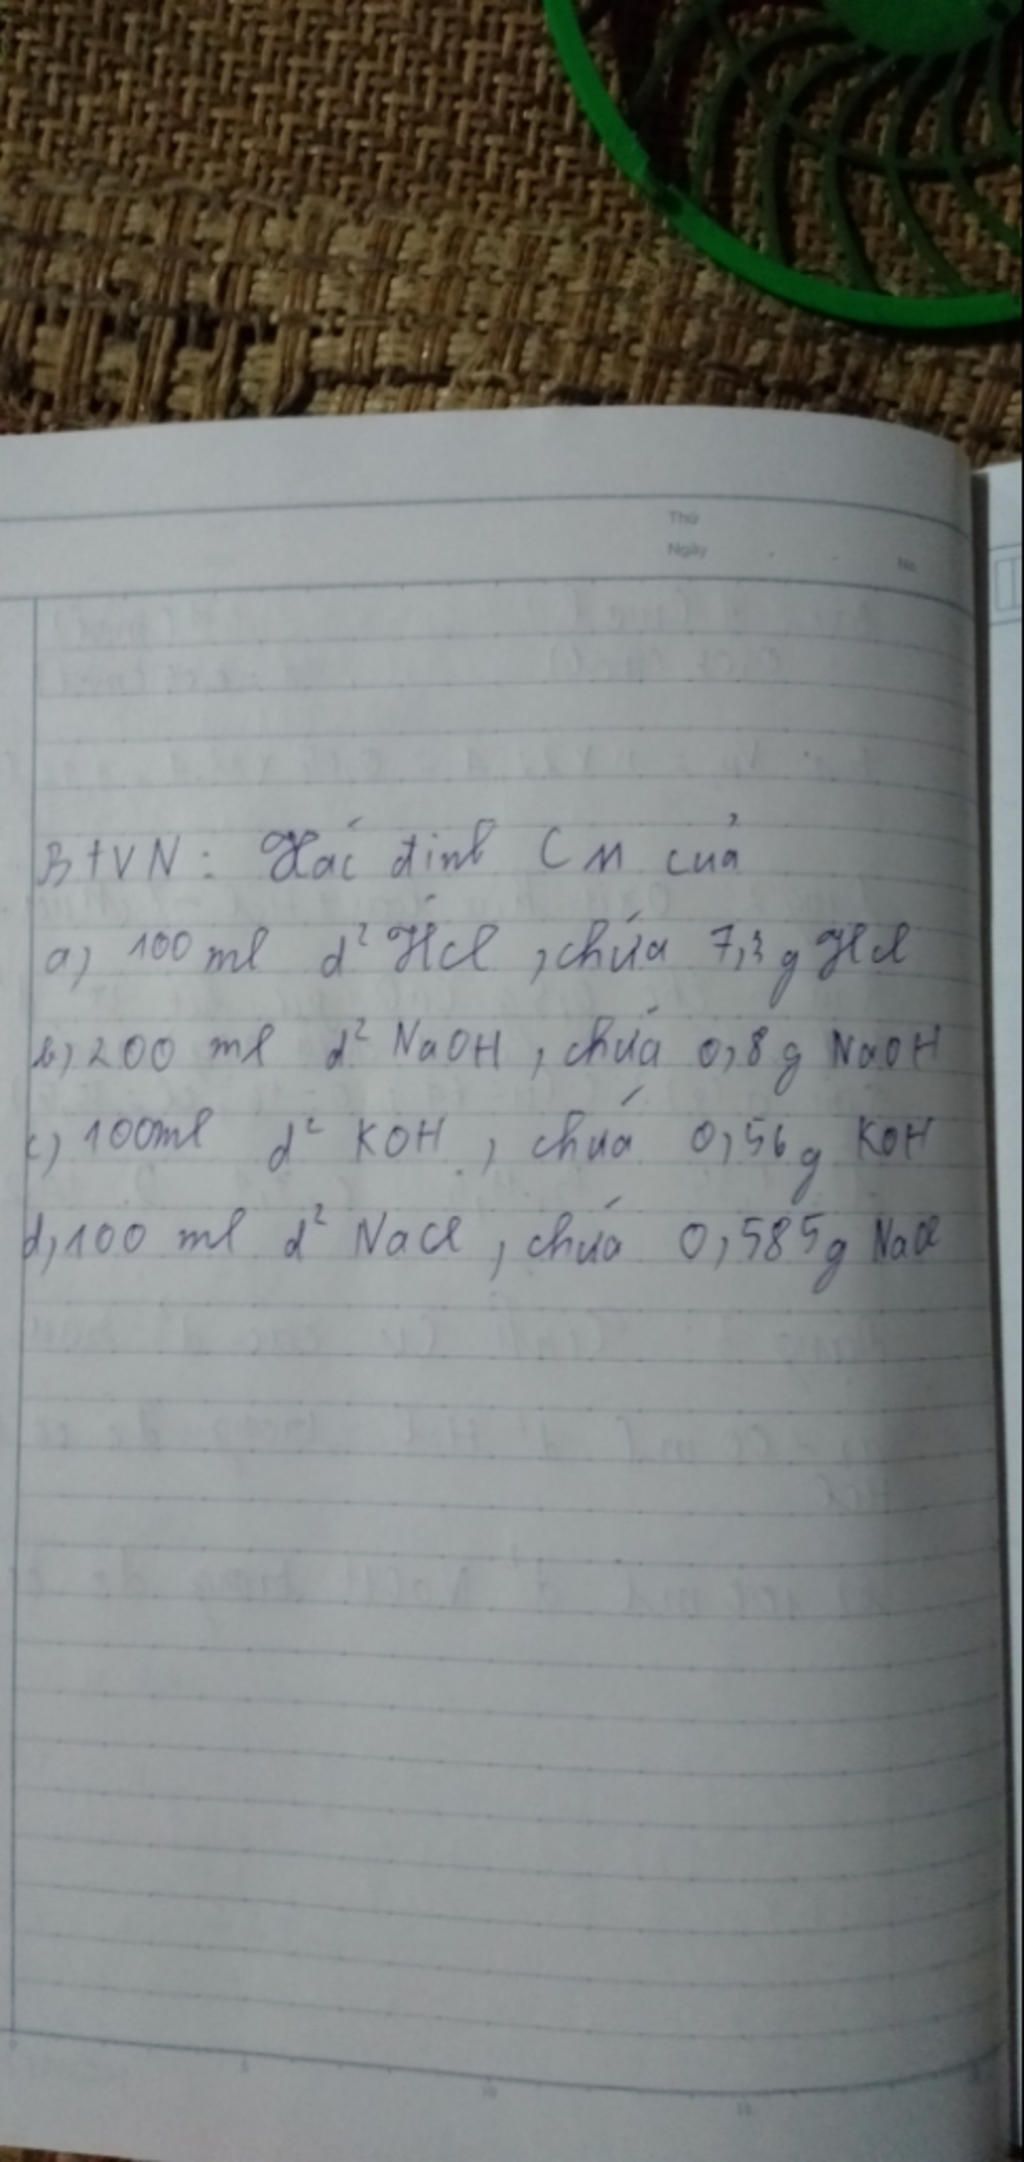 Thứ
Ngày
No.
BTVN: Xác định CM của
a) 100 ml d² HCl, chứa 7,3 g HCl
b, 200 ml d² NaOH, chứa 0,8 g NaOH
c) 100ml d² KOH, chứa 0,56 g KOH
d, 100 ml d² NaCl, chứa 0,585 g NaCl